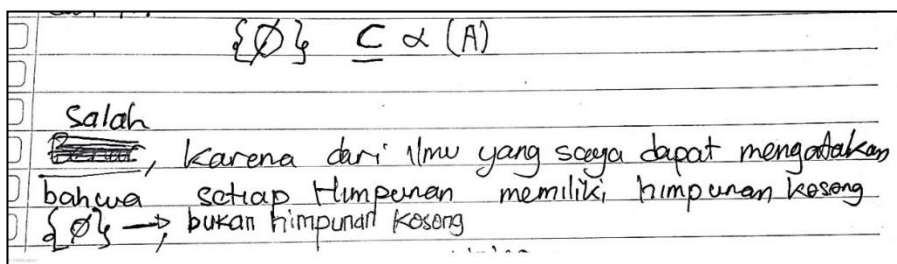 {∅} ⊆ α (A)
Salah
Benar, karena dari ilmu yang saya dapat mengatakan
bahwa setiap Himpunan memiliki himpunan kosong
{∅} → bukan himpunan kosong